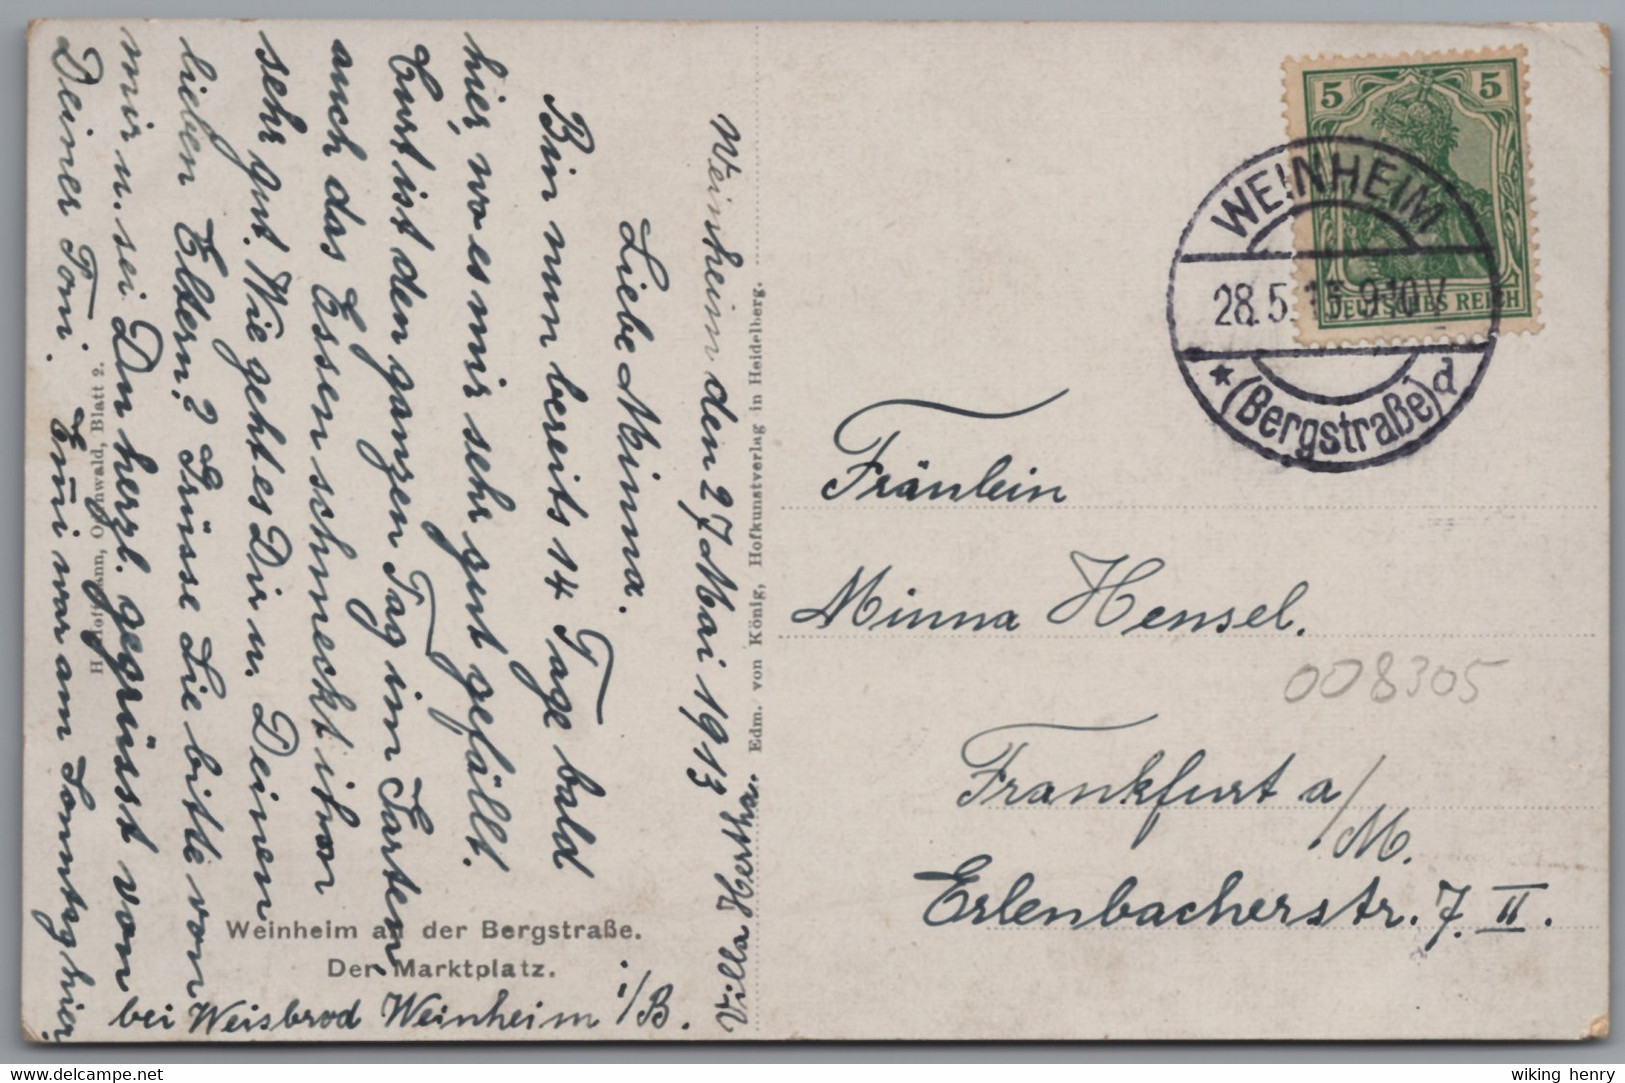 Weinheim den 27 Mai 1913
Villa Hertha.
Liebe Minna.
Bin nun bereits 14 Tage bald
hier, wo es mir sehr gut gefällt.
Curt ist den ganzen Tag im Garten,
auch das Essen schmeckt ihm
sehr gut. Wie geht es Dir u. Deinen
lieben Eltern? Grüsse Sie bitte von
mir u. sei Du herzl. gegrüsst von
Deiner Toni.
Emi war am Sonntag hier.
bei Weisbrod Weinheim i/B.
Weinheim an der Bergstraße.
Der Marktplatz.
H. Hoffmann, Odenwald, Blatt 2.
Edm. von König, Hofkunstverlag in Heidelberg.
5 5
DEUTSCHES REICH
WEINHEIM
28.5.13.9-10V
* (Bergstraße) d
Fräulein
Minna Hensel.
008305
Frankfurt a/M.
Erlenbacherstr. 7. II.
www.delcampe.net
wiking henry